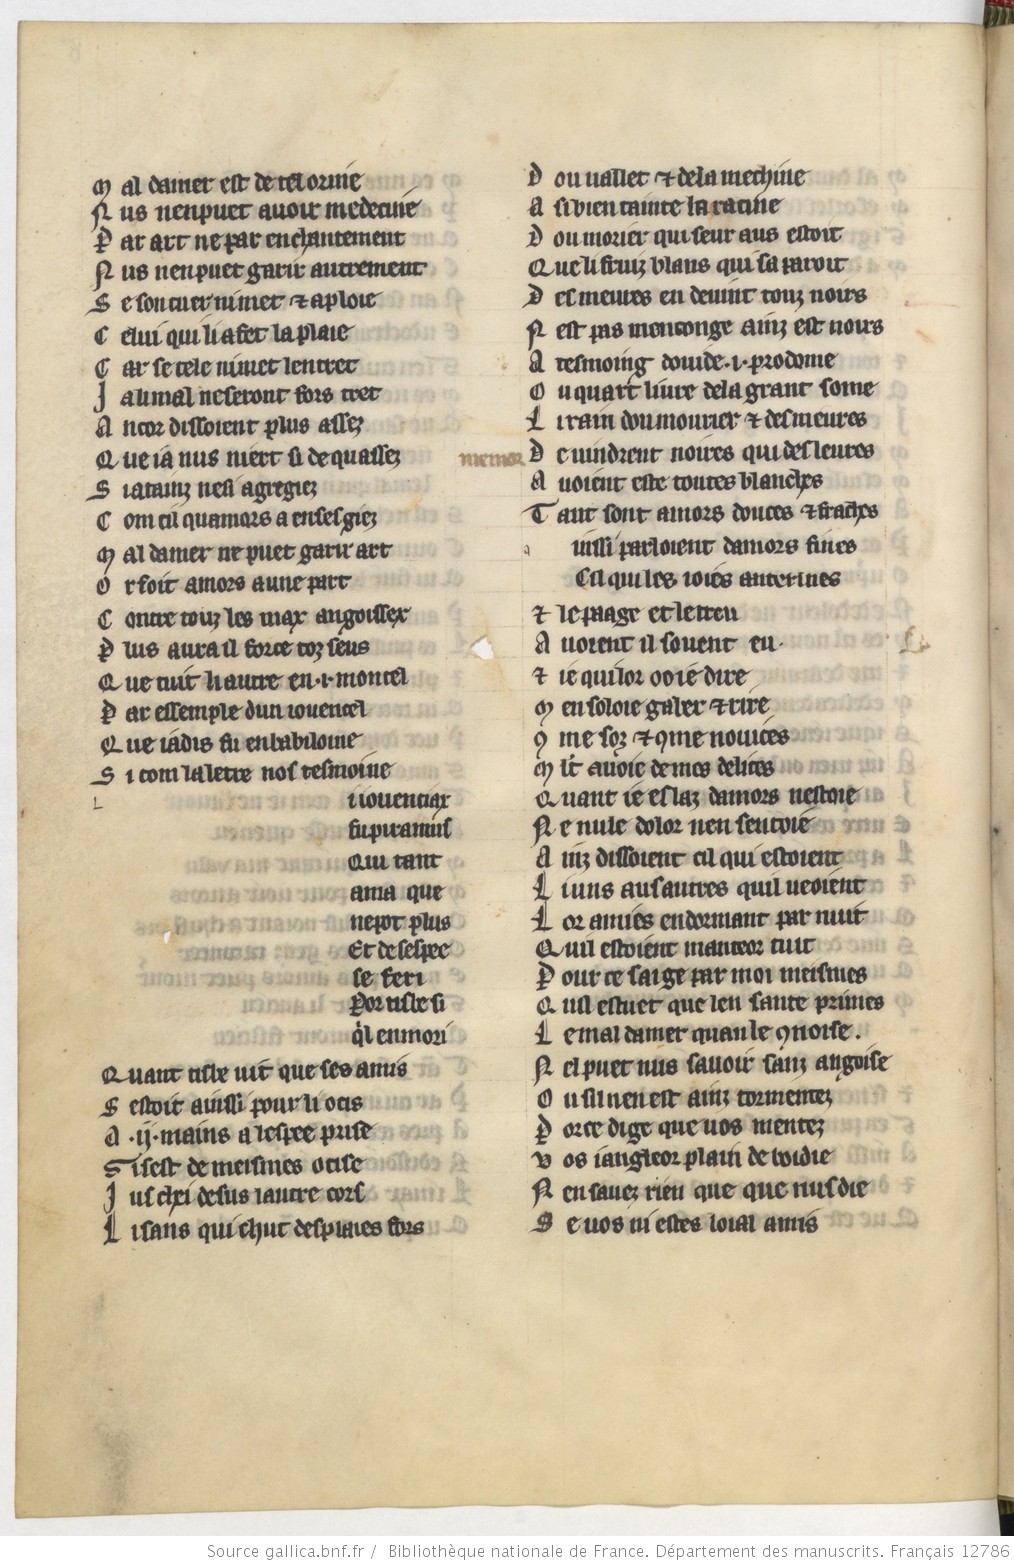 M al damer est de tel orine
N us nen puet avoir medecine
P ar art ne par enchantement
N us nen puet garir autrement
S e son cuer ni met & aploie
C elui qui li a fet la plaie
C ar se cele ni met lentret
J a li mal ne seront fors tret
A ncor dissoient plus assez
Q ue ia nus niert si de quassez
S i atainz nesi agregiez
C om cil quamors a enseigiez
M al damer ne puet garir art
O r soit amors a une part
C ontre touz les max angoissex
P lus aura il force toz seus
Q ue tuit li autre en .i. moncel
P ar essemple dun iouencel
Q ue iadis fu en babiloine
S i com la letre nos tesmoine
l
i iouenciax
fu piramus
Qui tant
ama que
nepot plus
Et de sespee
se feri
Por tisbe si
ql en mori
Q uant tisbe uit que ses amis
S estoit ainssi pour li ocis
A .ij. mains a lespee prise
S i sest de meismes ocise
J us chei desus lautre cors
L i sans qui chut des plaies fors
D ou uallet & de la meschine
A si bien tainte la racine
D ou morier qui seur aus estoit
Q ue li fruiz blans qui sa paroit
D es meures en deuint touz noirs
N est pas menconge ainz est uoirs
A tesmoing douide .i. prodome
O u quart liure de la grant some
L i rain dou mourier & des meures
D e uindrent noires qui des leures
memor
A uoient este toutes blanches
T ant sont amors douces & franches
a
uissi parloient damors fines
Cil qui les ioies anterines
& le paage et le treu
A uoient il souent eu.
& ie qui lor ooie dire
M en soloie gaber & rire
9 me soz & 9me nouices
M lt auoie de mes delices
Q uant ie es laz damors nestoie
N e nule dolor nen sentoie
A inz dissoient cil qui estoient
L i uns aus autres quil ueoient
L or amies en dormant par nuit
Q uil estoient manteor tuit
P our ce sai ge par moi meismes
Q uil estuet que len sante primes
L e mal damer quan le 9noise.
N el puet nus sauoir sanz angoise
O u sil nen est ainz tormentez
P or ce di ge que uos mentez
V os iangleor plain de boidie
N en sauez rien que que nus die
S e uos ni estes loial amis
Source gallica.bnf.fr / Bibliothèque nationale de France. Département des manuscrits. Français 12786